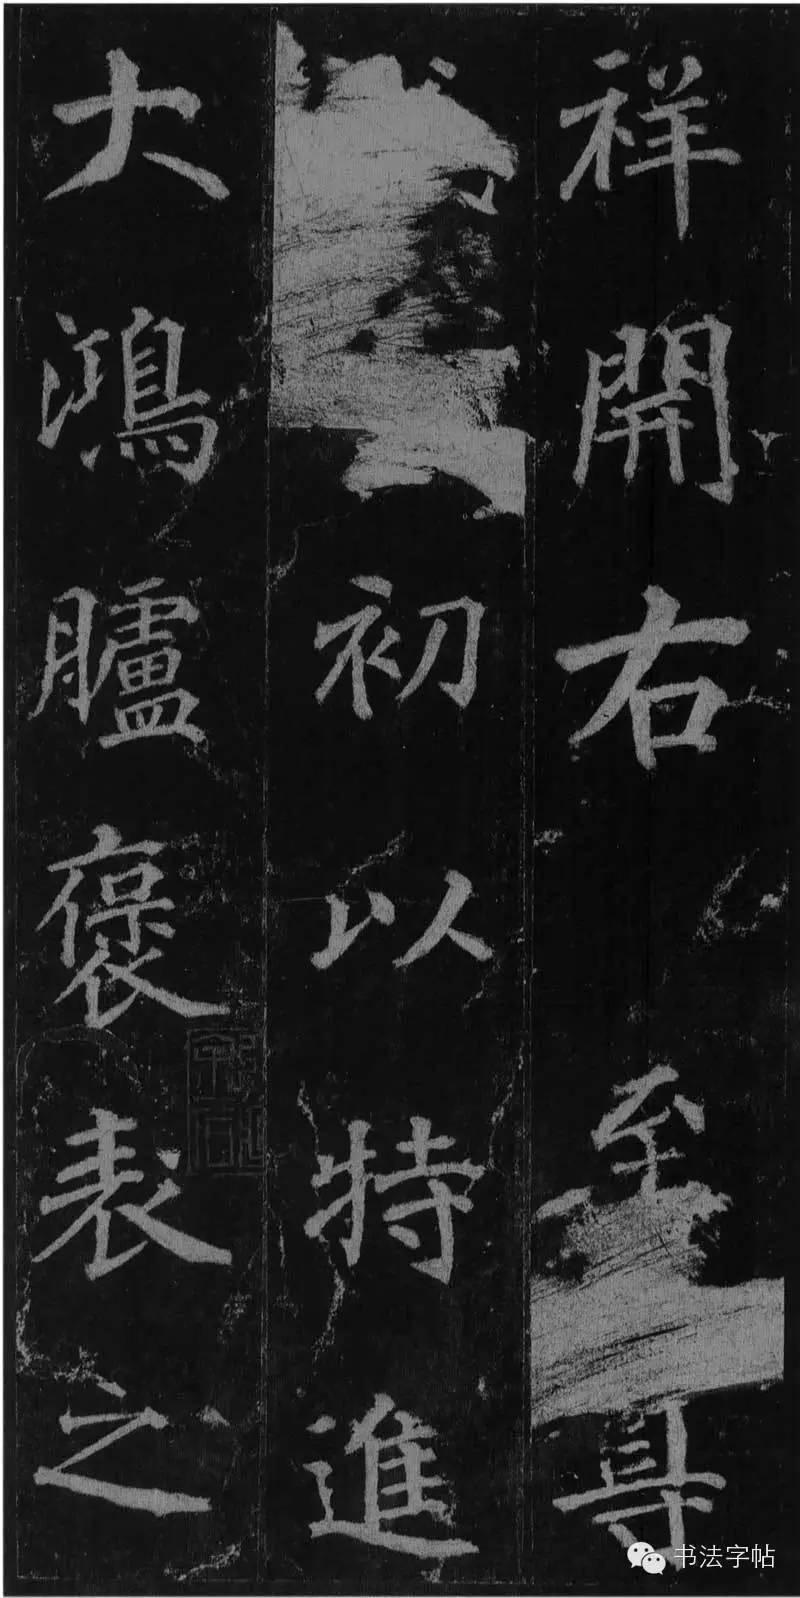 祥開右至
初以特進
大鴻臚褒表之
书法字帖